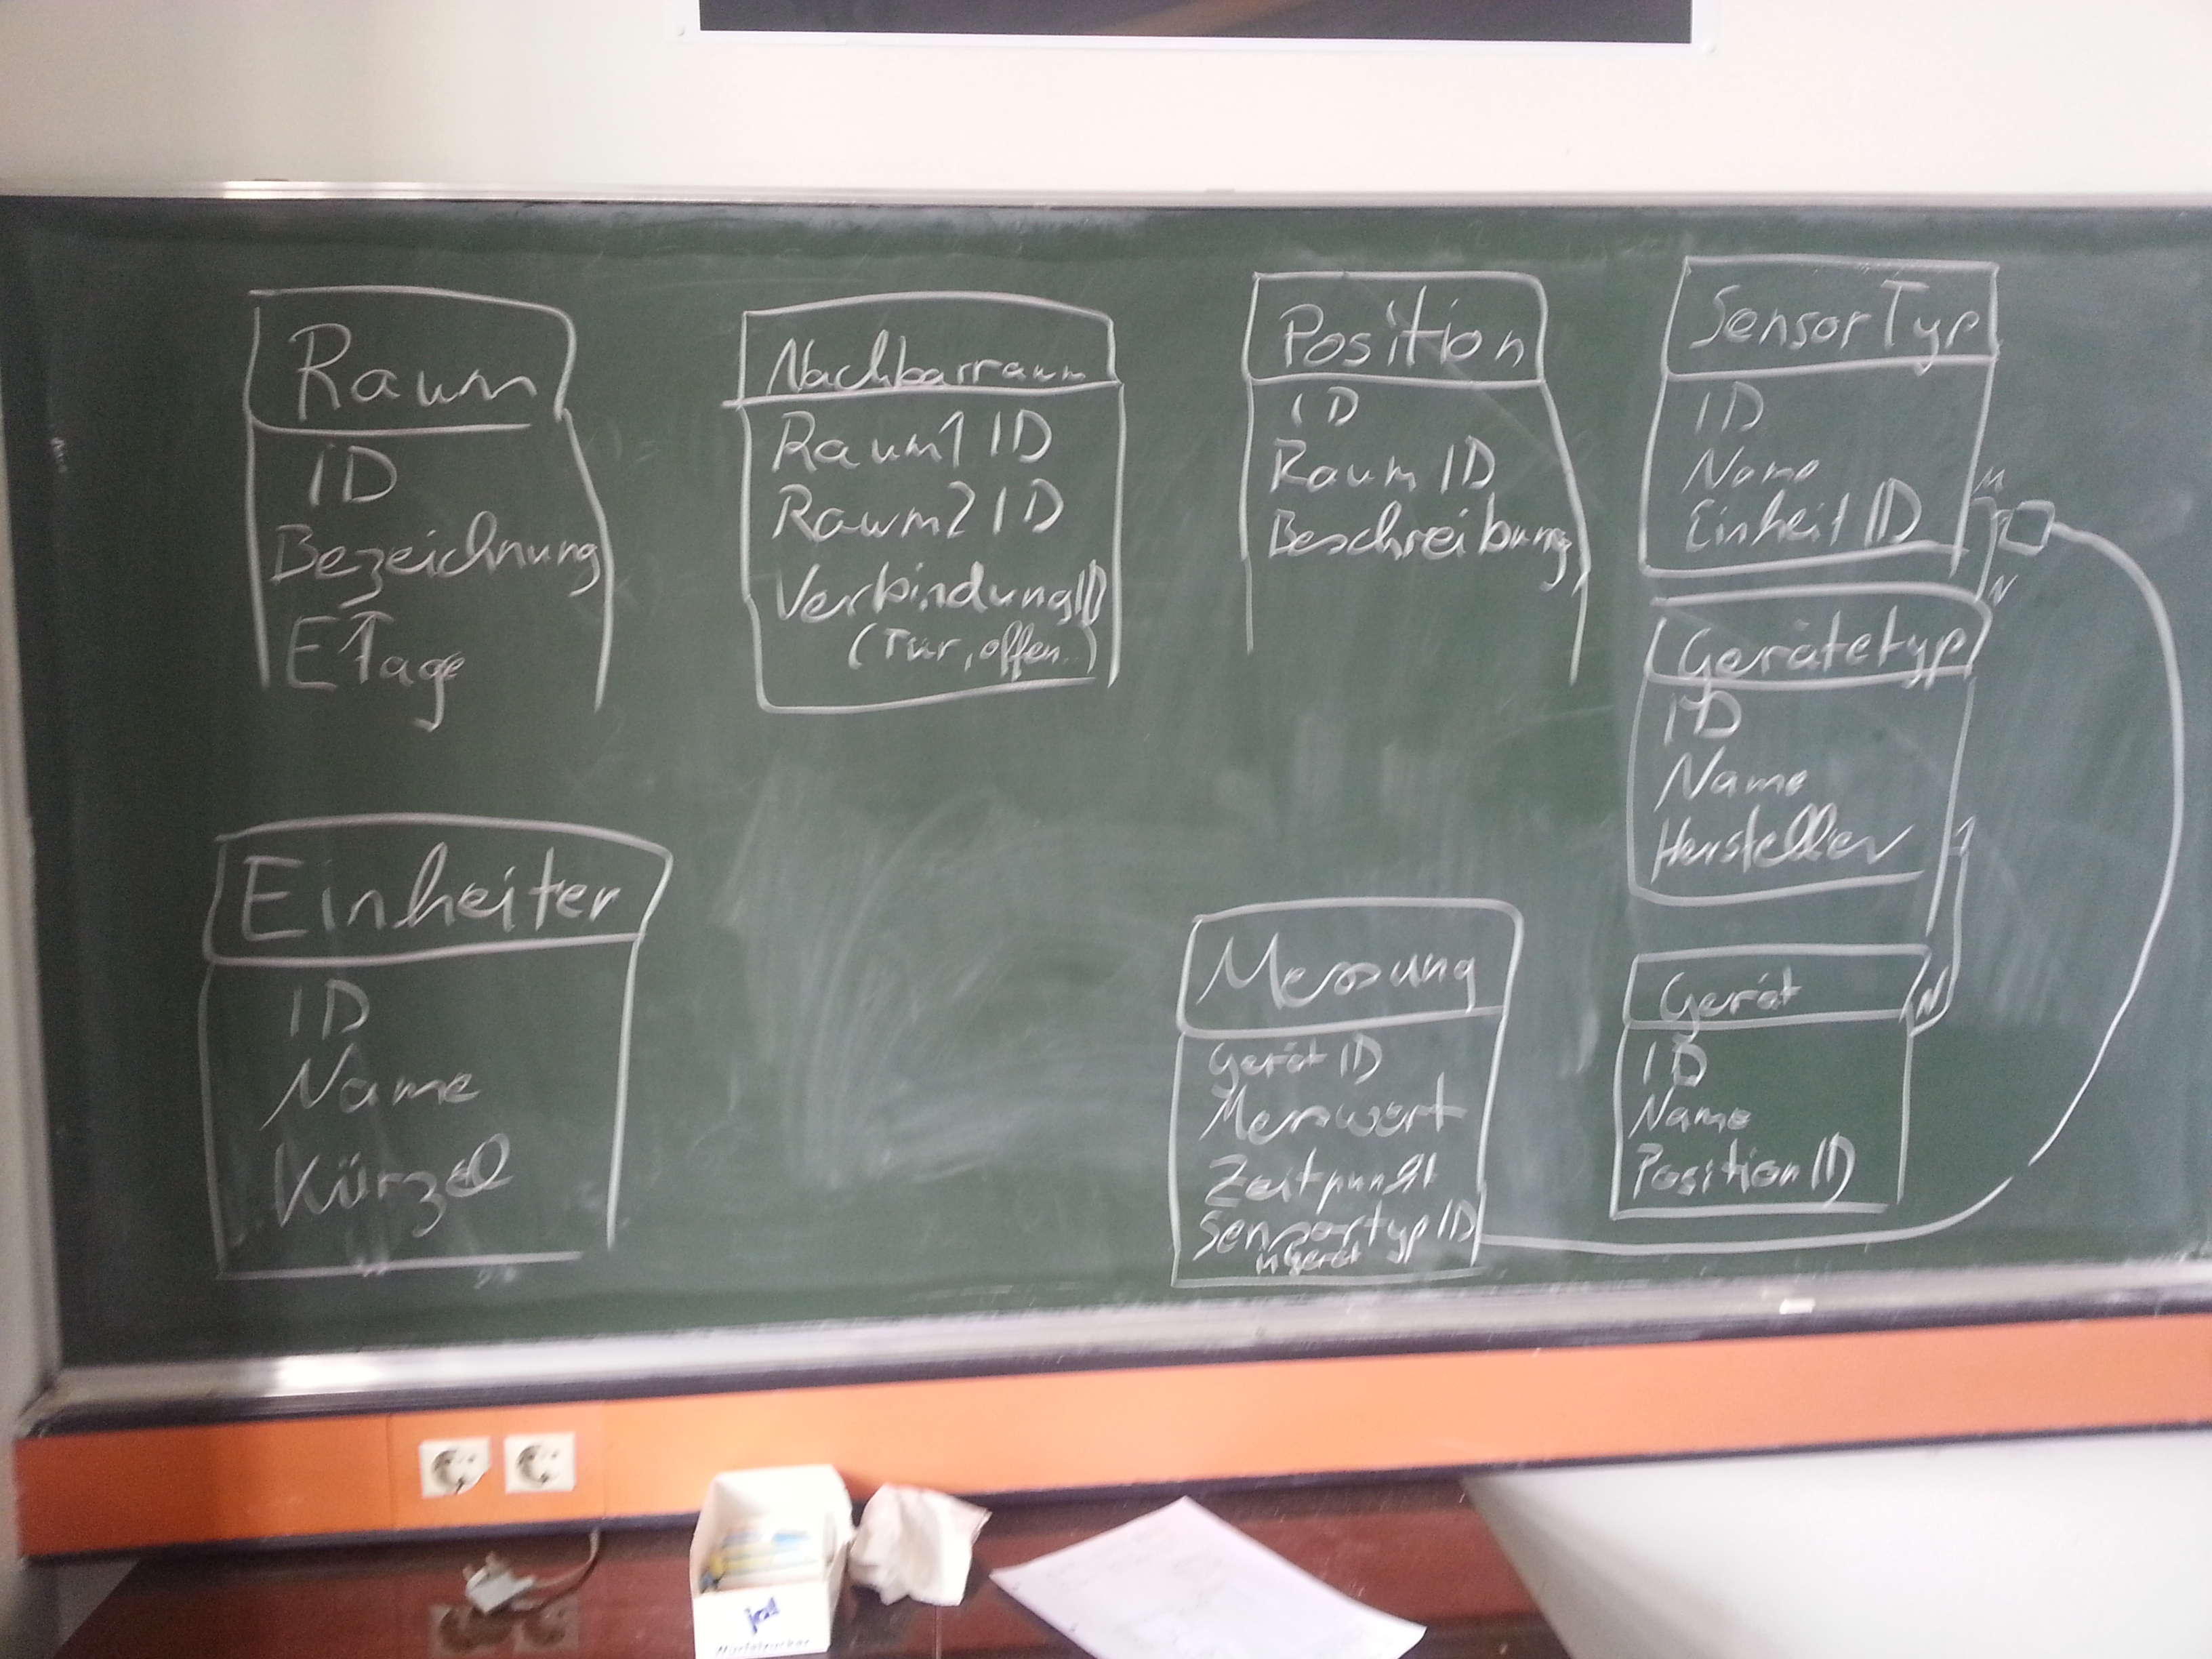 Raum
ID
Bezeichnung
ETage
Nachbarraum
Raum1 ID
Raum2 ID
Verbindung ID
(Tür, offen..)
Position
ID
Raum ID
Beschreibung
SensorTyp
ID
Name
Einheit ID
M
N
Gerätetyp
ID
Name
Hersteller
1
N
Gerät
ID
Name
Position ID
Messung
Gerät ID
Messwert
Zeitpunkt
Sensortyp ID
in Gerät
Einheiten
ID
Name
Kürzel
ja!
Würfelzucker